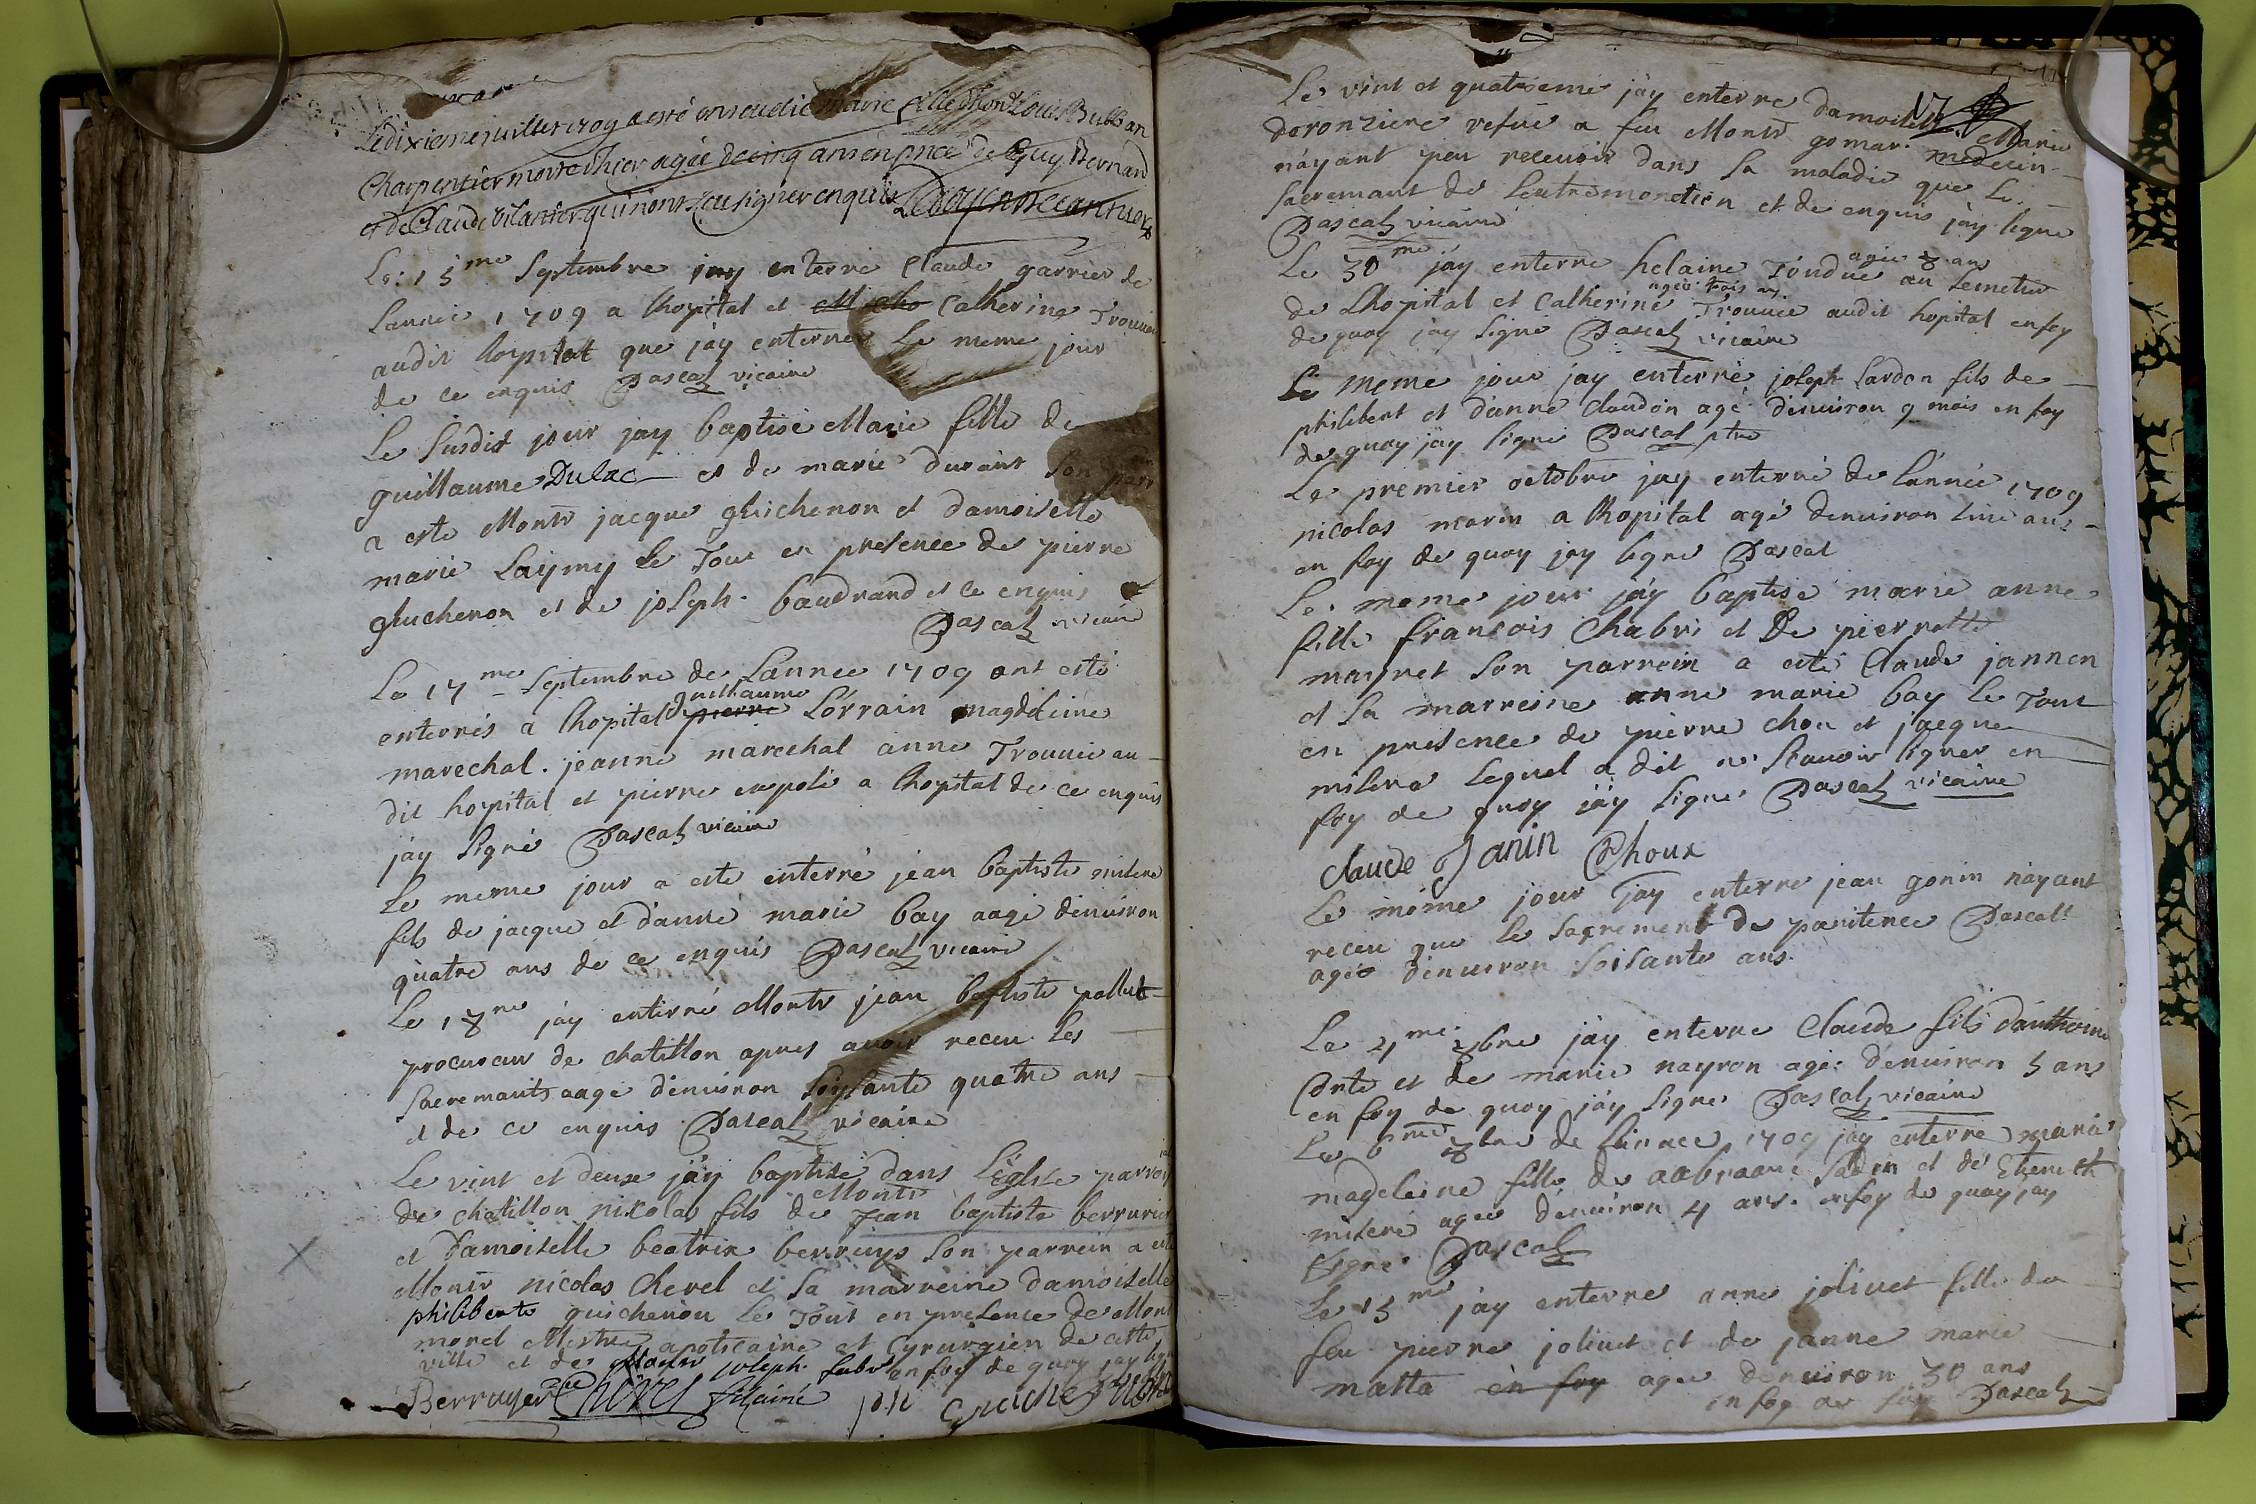 Le dixieme juillet 1709 a esté Marie fille d'hon. Louis Bulban
Charpentier morte hier agée de cinq ans en pnce de Guy Bernard
et de Claude qui n'ont sceu signer enquis
Le 15me Septembre jay enterre Claude garrier de
Lannée 1709 a lhopital et Catherine Trouvée
audit hopital que jay enterrer Le meme jour
de ce enquis Pascal vicaire
Le susdit jour jay baptisé Marie fille de
guillaume Dulac et de marie durant son parr
a este Monsr jacque ghichenon et damoiselle
marie Laymy le Tout en presence de pierre
ghuchenon et de joseph baudrand et ce enquis
Pascal vicaire
Le 17me Septembre de Lannee 1709 ont esté
enterrés a lhopital guillaume pierre Lorrain magdeleine
marechal . jeanne marechal anne Trouvée au
dit hopital et pierre a lhopital de ce enquis
jay signé Pascal vicaire
Le meme jour a esté enterré jean baptiste milere
fils de jacque et danne marie bay aagé denuiron
quatre ans de ce enquis Pascal vicaire
Le 18me jay enterré Monsr jean baptiste pollet
procureur de chatillon apres avoir receu les
sacremants aagé denuiron soysante quatre ans
et de ce enquis Pascal vicaire
Le vint et deuxe jay baptisé dans Léglise parroi
de chatillon nicolas fils de Monsr jean baptiste berrurier
et damoiselle beatrix berruys son parrein a esté
Monsr nicolas Chevel et sa marreine damoiselle
philiberte guichenon Le Tout en presence de Mons
morel apoticaire et Cyrurgien de cette
ville et de joseph fabr en foy de quoy jay signé
Berruyer Chevel
Le vint et quatrieme jay enterre damoiselle Marie
deronziere vefue a feu Monsr gomar . medecin
nayant peu receuoir dans sa maladie que Le
sacremant de et de enquis jay signe
Pascal vicaire
Le 30me jay enterre helaine Tondue agée 8 ans au
de Lhopital et Catherine agée trois ans Trouvée audit hopital en foy
de quoy jay signé Pascal vicaire
Le meme jour jay enterré joseph Lardon fils de
philibert et danne Claudon agé denuiron 9 mois en foy
de quoy jay signé Pascal ptre
Le premier octobre jay enterré de Lannée 1709
nicolas morin a lhopital agé denuiron ans
en foy de quoy jay signe Pascal
Le meme jour jay baptisé marie anne
fille francois Chabri et De pierrette
mayret son parrein a esté Claude jannen
et sa marreine anne marie bay Le Tout
en presence de pierre chou et jacque
milere Lequel a dit ne scauoir signer en
foy de quoy jay signe Pascal vicaire
Claude Janin Choux
Le meme jour jay enterre jean gonin nayant
receu que le sacrement de panitence Pascal
agee denuiron soisante ans
Le 4me 8bre jay enterre Claude fils danthoine
Conte et de marie nayron agé denuiron 5 ans
en foy de quoy jay signe Pascal vicaire
Le 6me 8bre de Lannee 1709 jay enterré maria
magdeleine fille de aabraam Sadin et de
milere agee denuiron 4 ans . en foy de quoy jay
signe Pascal
Le 15me jay enterre anne joliuet fille de
feu pierre joliuet et de janne marie
matta en foy agee denuiron 30 ans
Pascal